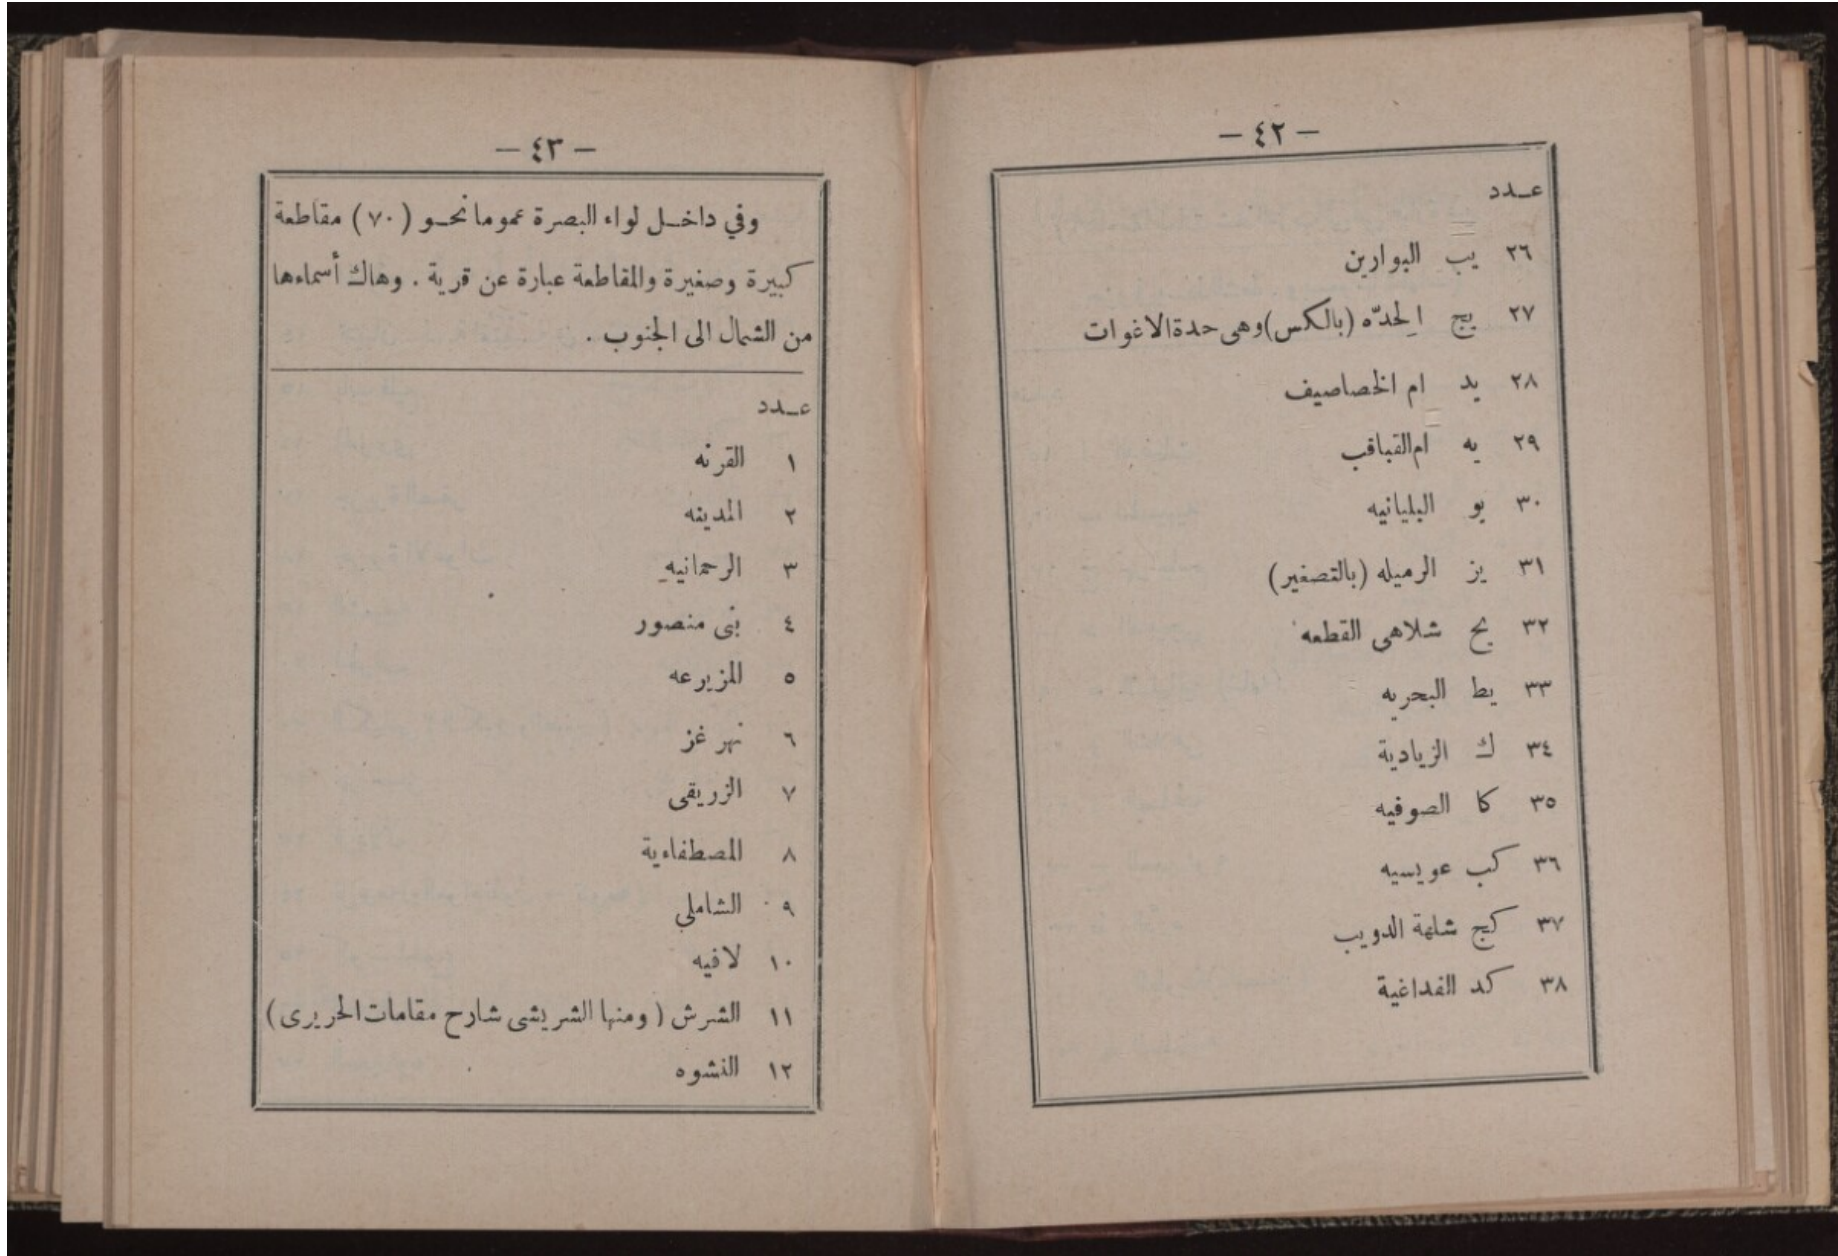 — ٤٢ —
عـدد
٢٦ يب البوارين
٢٧ يج الِحدّه (بالكس) وهى حدة الاغوات
٢٨ يد ام الخصاصيف
٢٩ يه ام القباقب
٣٠ يو البليانيه
٣١ يز الرميله (بالتصغير)
٣٢ يح شلاهى القطعه
٣٣ يط البحريه
٣٤ ك الزيادية
٣٥ كا الصوفيه
٣٦ كب عويسيه
٣٧ كج شلهة الدويب
٣٨ كد الفداغية
— ٤٣ —
وفي داخـل لواء البصرة عموما نحـو (٧٠) مقاطعة
كبيرة وصغيرة والمقاطعة عبارة عن قرية . وهاك أسماءها
من الشمال الى الجنوب .
عـدد
١ القرنه
٢ المدينه
٣ الرحمانيه
٤ بنى منصور
٥ المزيرعه
٦ نهر غز
٧ الزريقى
٨ المصطفاءية
٩ الشاملي
١٠ لافيه
١١ الشرش (ومنها الشريشى شارح مقامات الحريرى)
١٢ النشوه